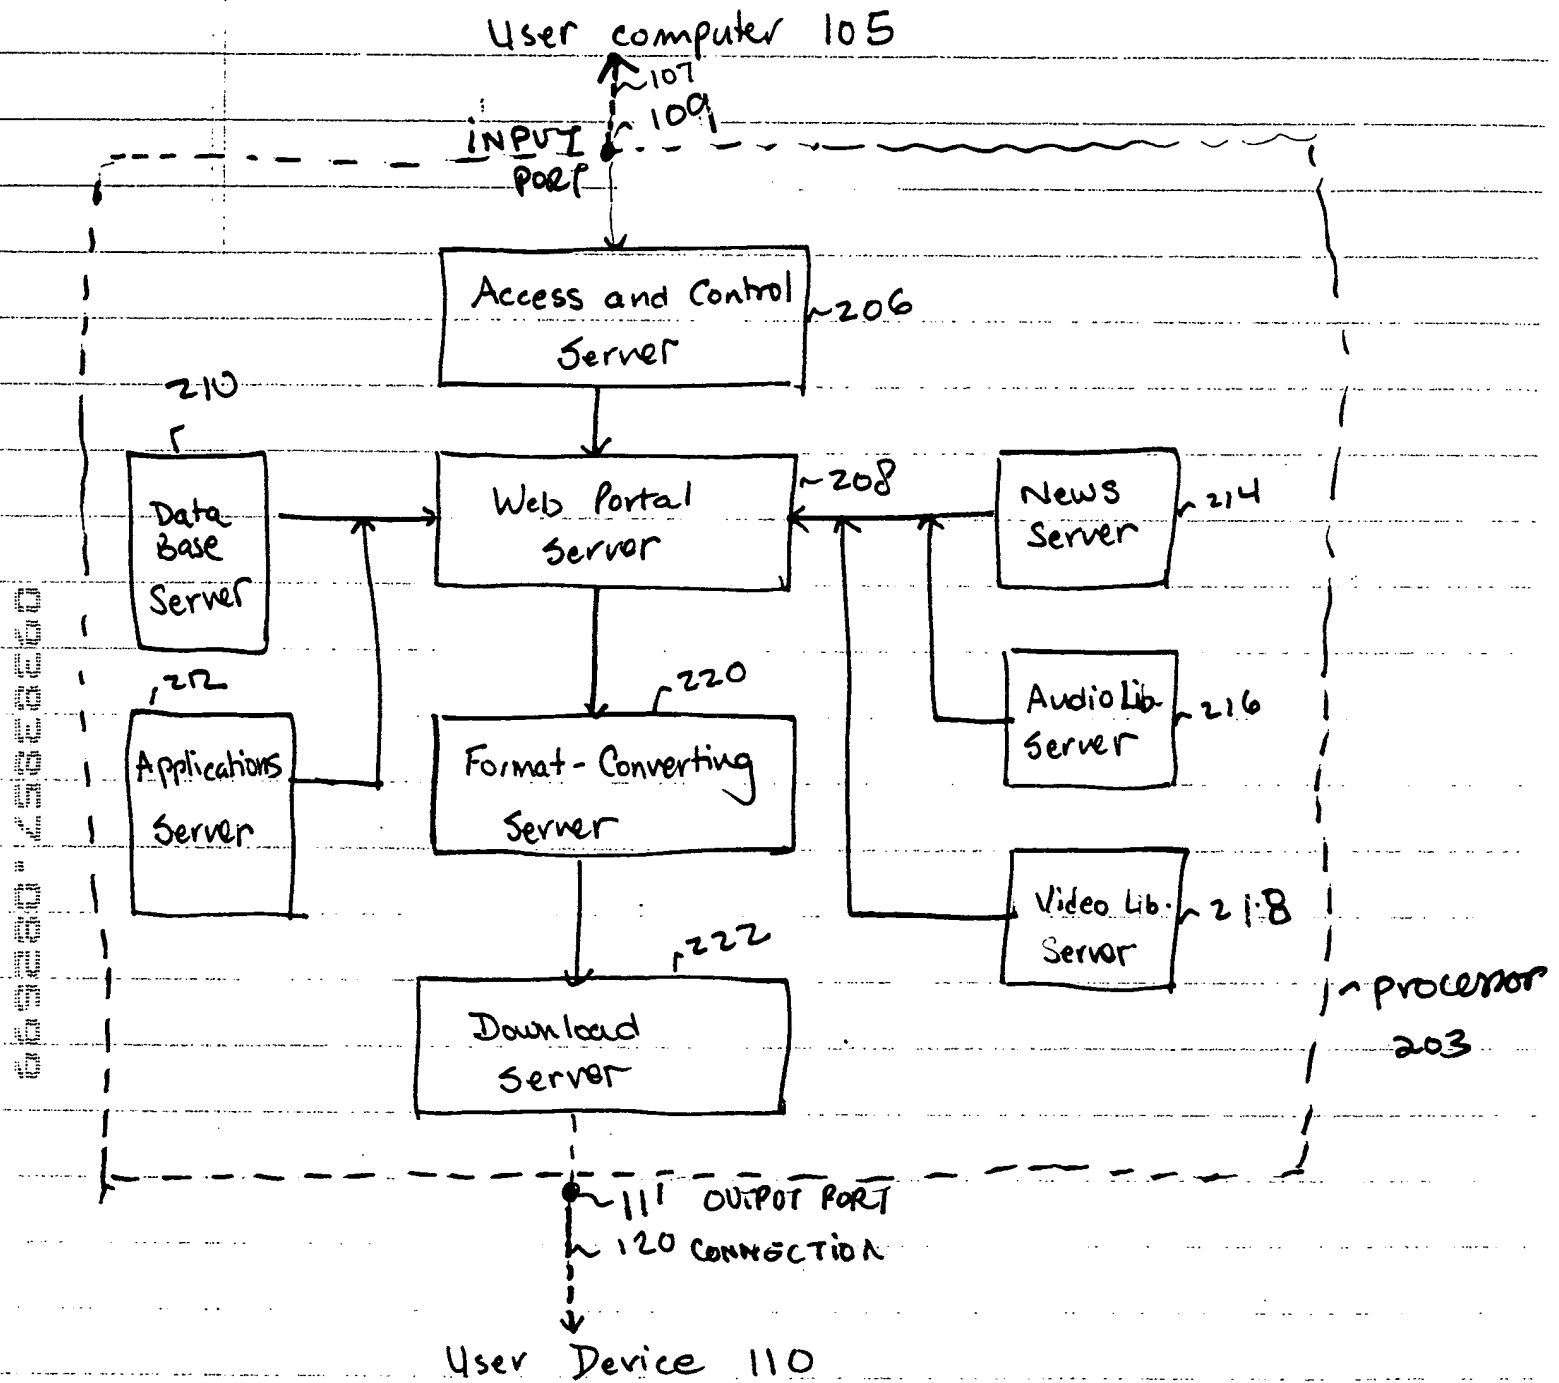 User computer 105
107
109
INPUT
PORT
Access and Control
Server
206
210
Data
Base
Server
Web Portal
Server
208
News
Server
214
212
Applications
Server
220
Format-Converting
Server
Audio Lib.
Server
216
Video Lib.
Server
218
222
Download
Server
processor
203
111 OUTPUT PORT
120 CONNECTION
User Device 110